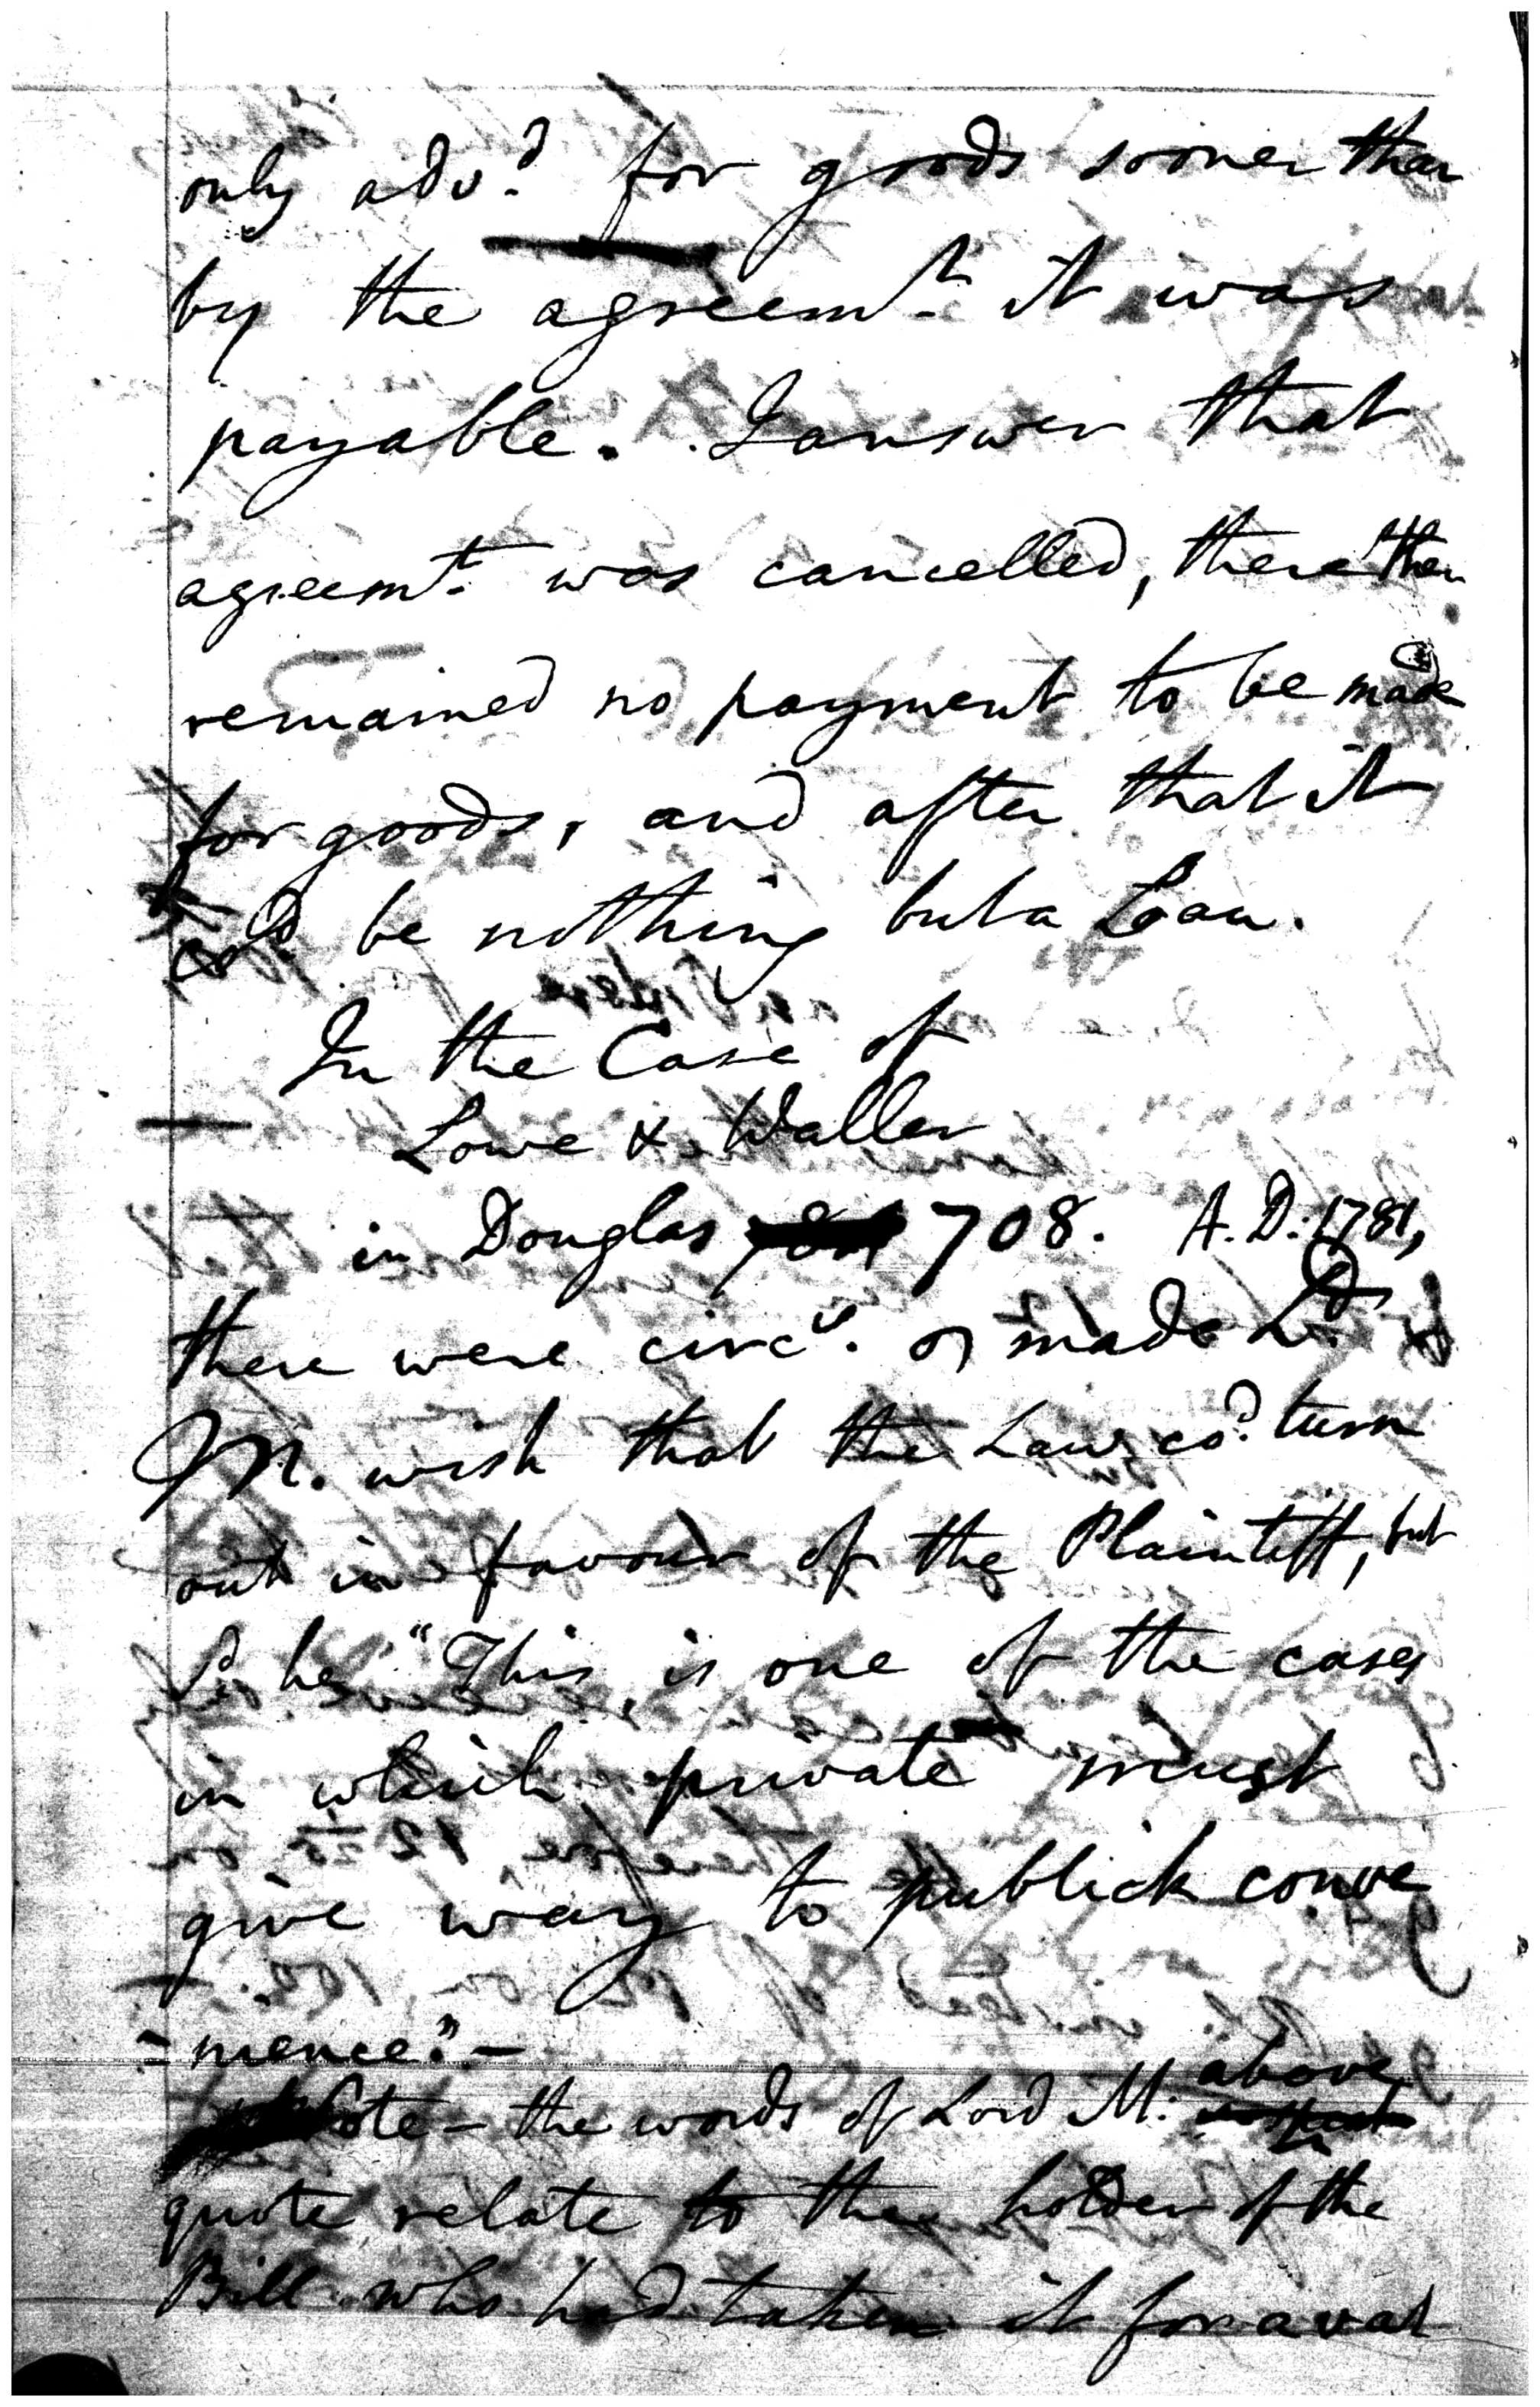 only adv.d for goods sooner than
by the agreem.t it was
payable. I answer that
agreem.t was cancelled, there then
remained no payment to be made
for goods, and after that it
co.d be nothing but a Loan.
In the Case of
Lowe & Waller
in Douglas 708. A.D: 1781,
there were circ.s made L.d
M. wish that the Law co.d turn
out in favour of the Plaintiff, but
s.d he "This is one of the cases
in which private must
give way to publick conve
=nience." -
above
Note - the words of Lord M:
quote relate to the holder of the
Bill who had taken it for a val